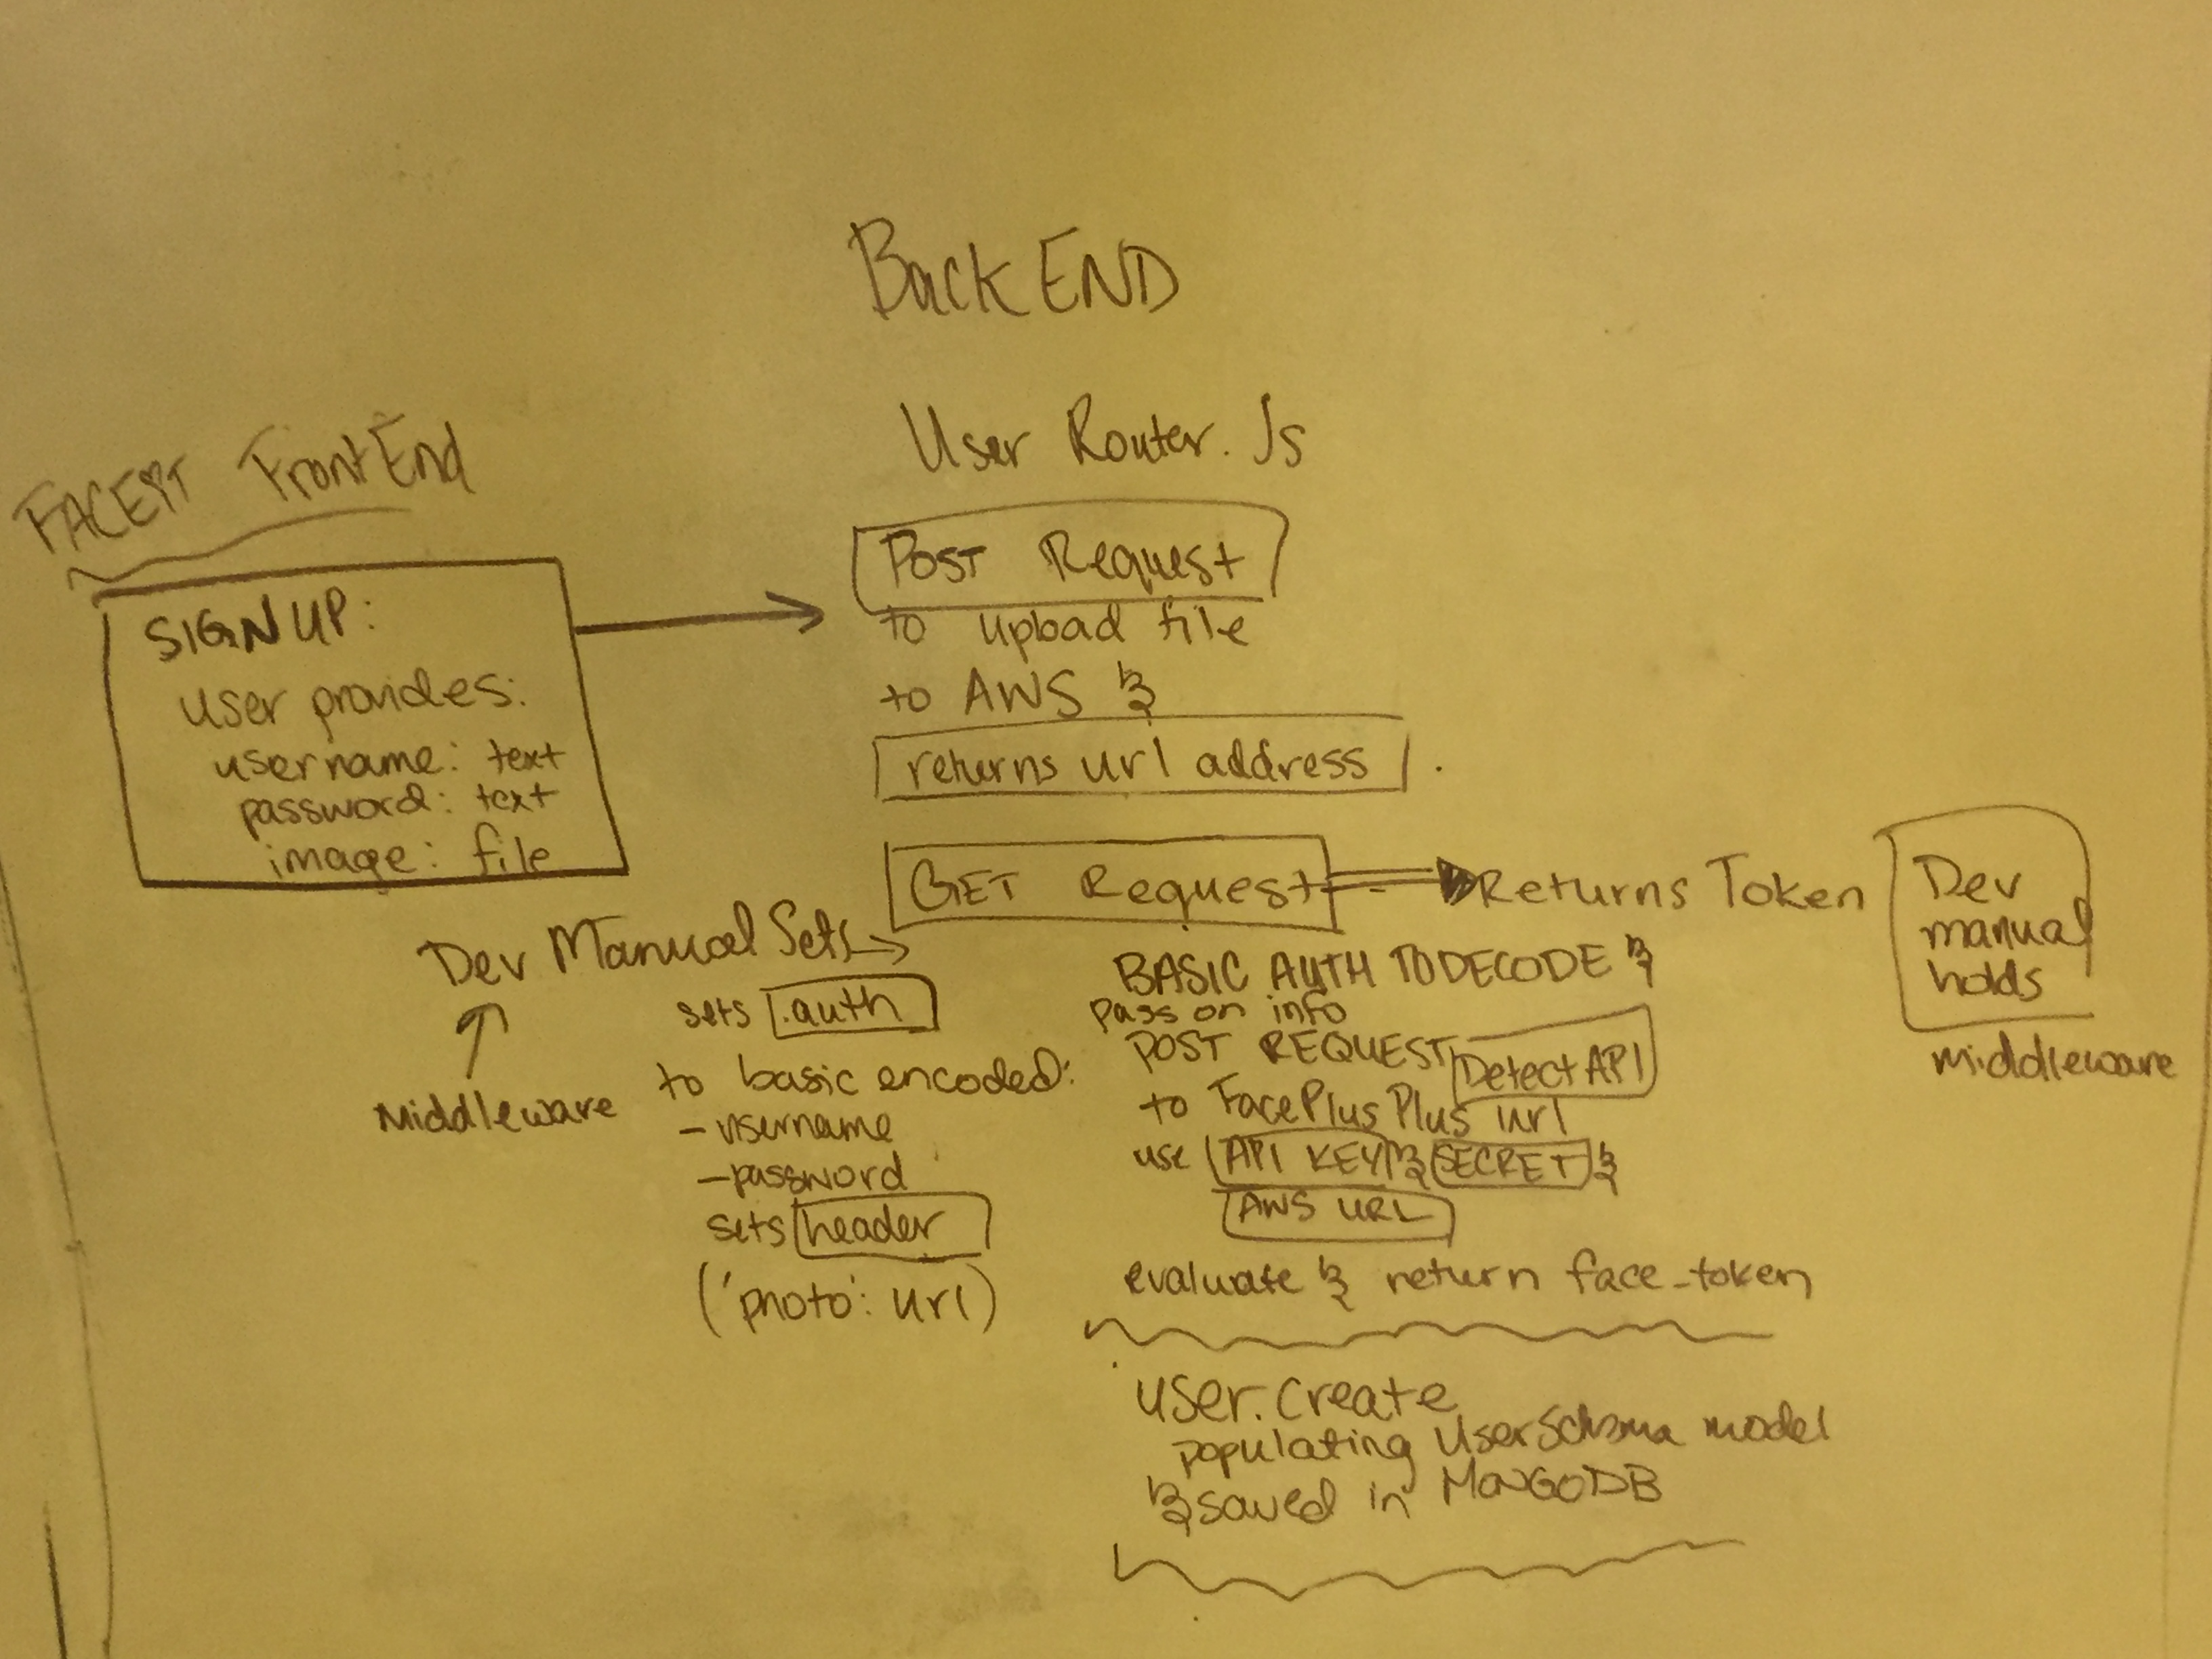 Back END
User Router. Js
FrontEnd
SIGN UP:
user provides:
username: text
password: text
image: file
POST Request
to upload file
to AWS &
returns url address
GET Request
Returns Token
Dev
manual
holds
Middleware
Dev Manual Sets
Middleware
sets .auth
to basic encoded:
- username
- password
sets header
('photo': url)
BASIC AUTH TO DECODE &
pass on info
POST REQUEST Detect API
to FacePlusPlus url
use API KEY & SECRET &
AWS URL
evaluate & return face_token
user.create
populating UserSchema model
& saved in MONGODB